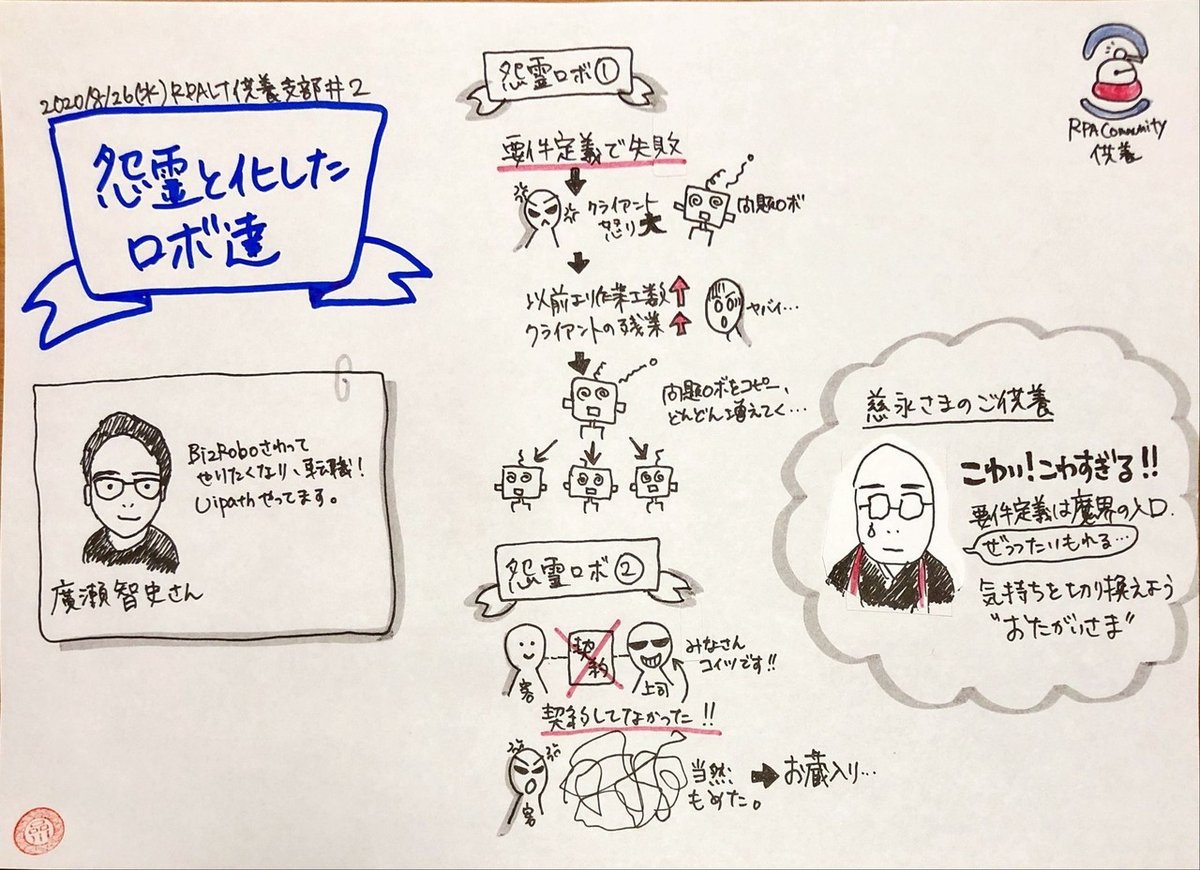 2020/8/26(水) RPALT供養支部#2
怨霊と化した
ロボ達
BizRoboさわって
やりたくなり、転職!
Uipathやってます。
廣瀬智史さん
怨霊ロボ①
要件定義で失敗
クライアント
怒り大
問題ロボ
以前より作業工数↑
クライアントの残業↑
ヤバイ…
問題ロボをコピー、
どんどん増えてく…
怨霊ロボ②
客
契約
上司
みなさん
コイツです!!
契約してなかった!!
客
当然、
もめた。
お蔵入り…
RPACommunity
供養
慈永さまのご供養
こわい!こわすぎる!!
要件定義は魔界の入口.
ぜうったいもれる…
気持ちを切り換えよう
"おたがいさま"